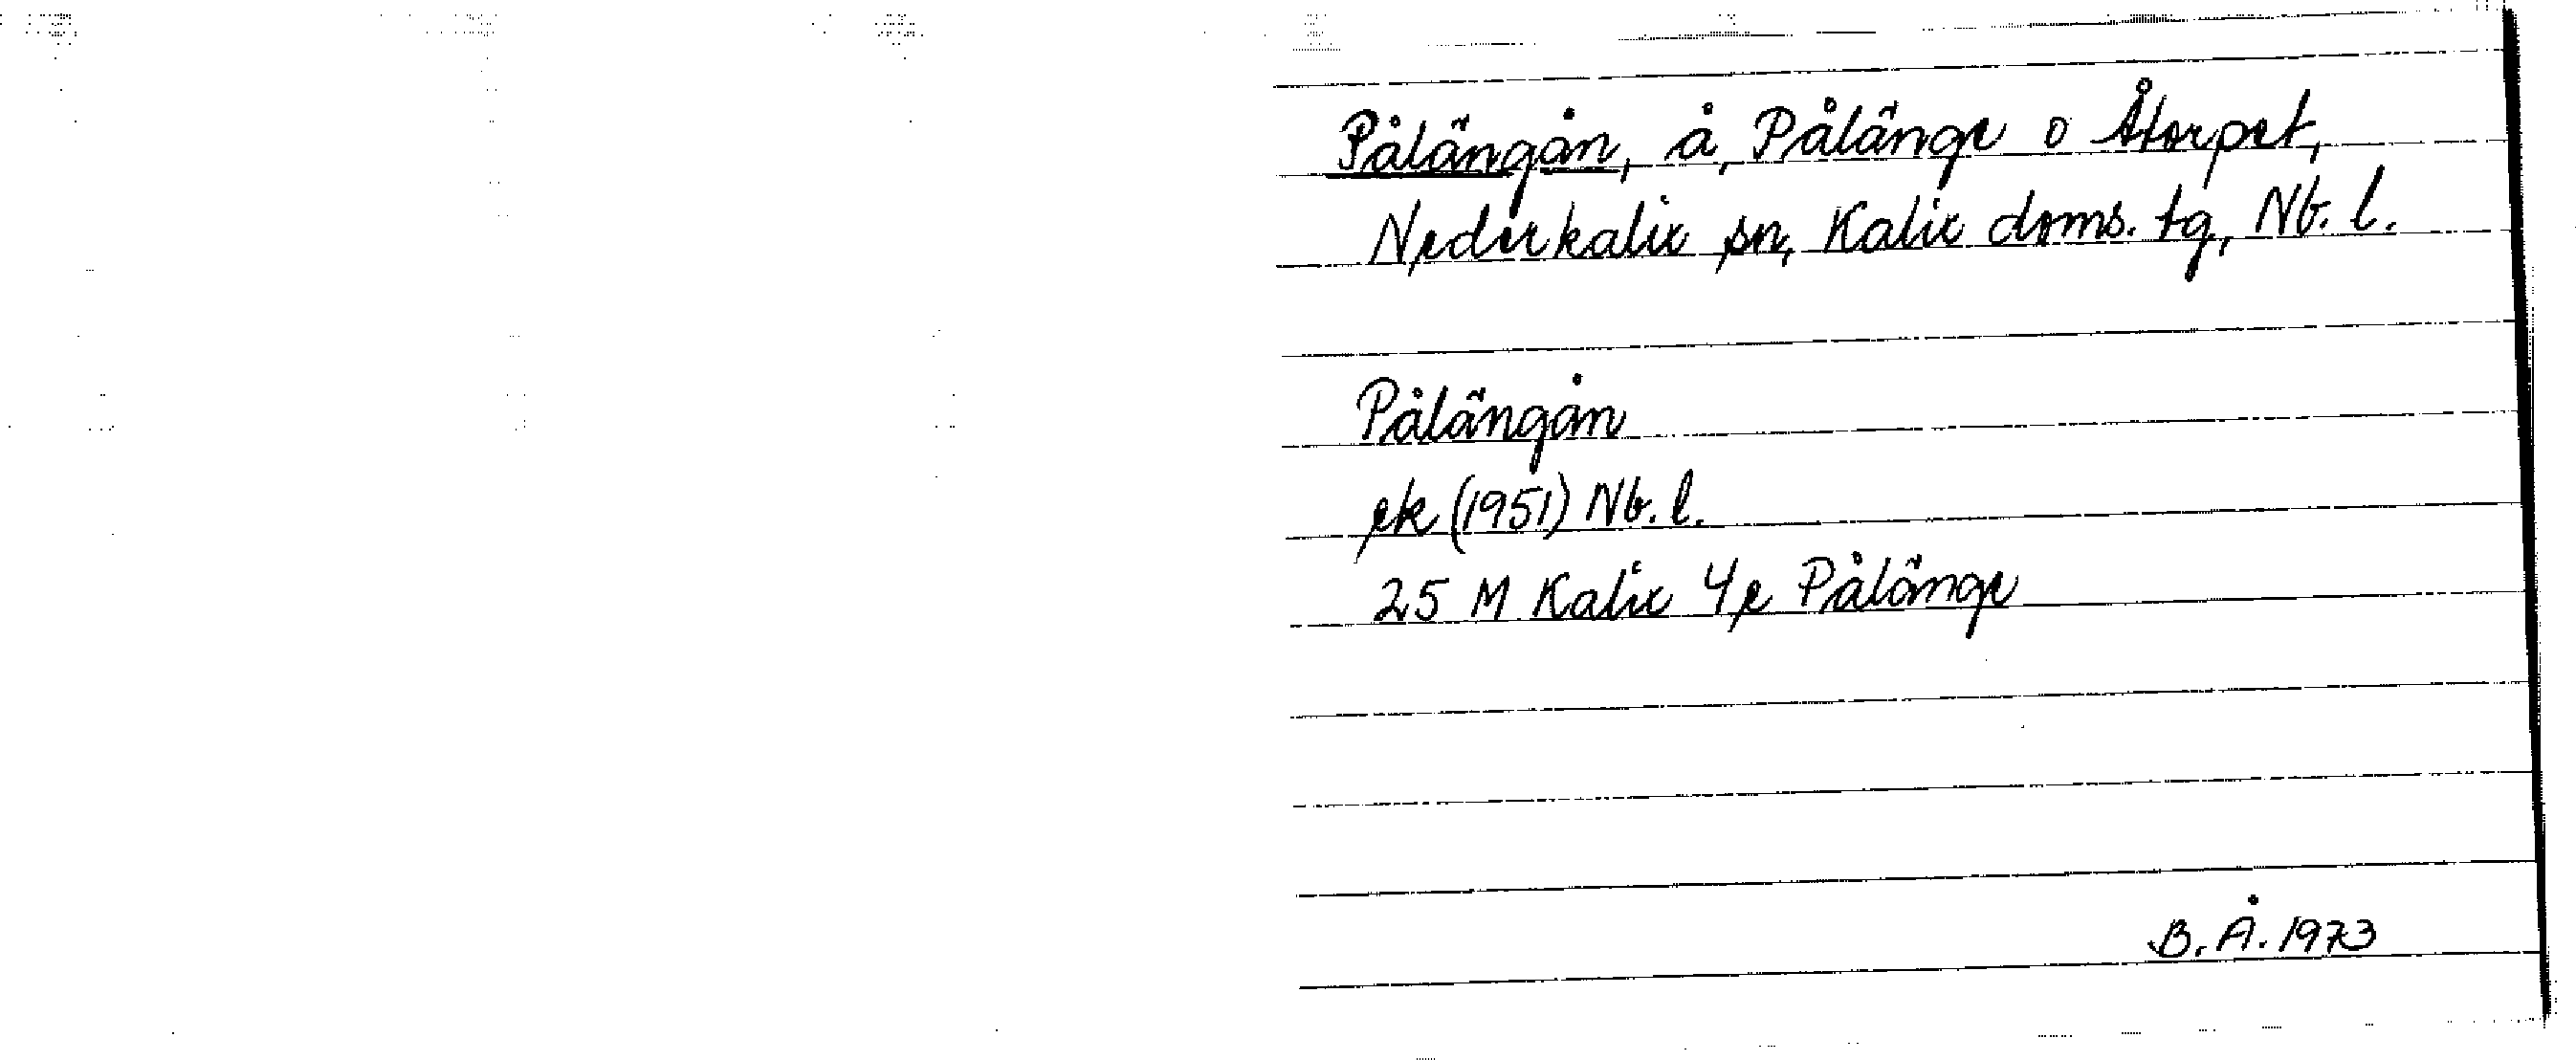 Pålängån, å, Pålänge o Åtorpet,
Nederkalix sn, Kalix doms. tg, Nb. l.
Pålängån
ek (1951) Nb. l.
25 M Kalix 4e Pålänge
B. Å. 1973